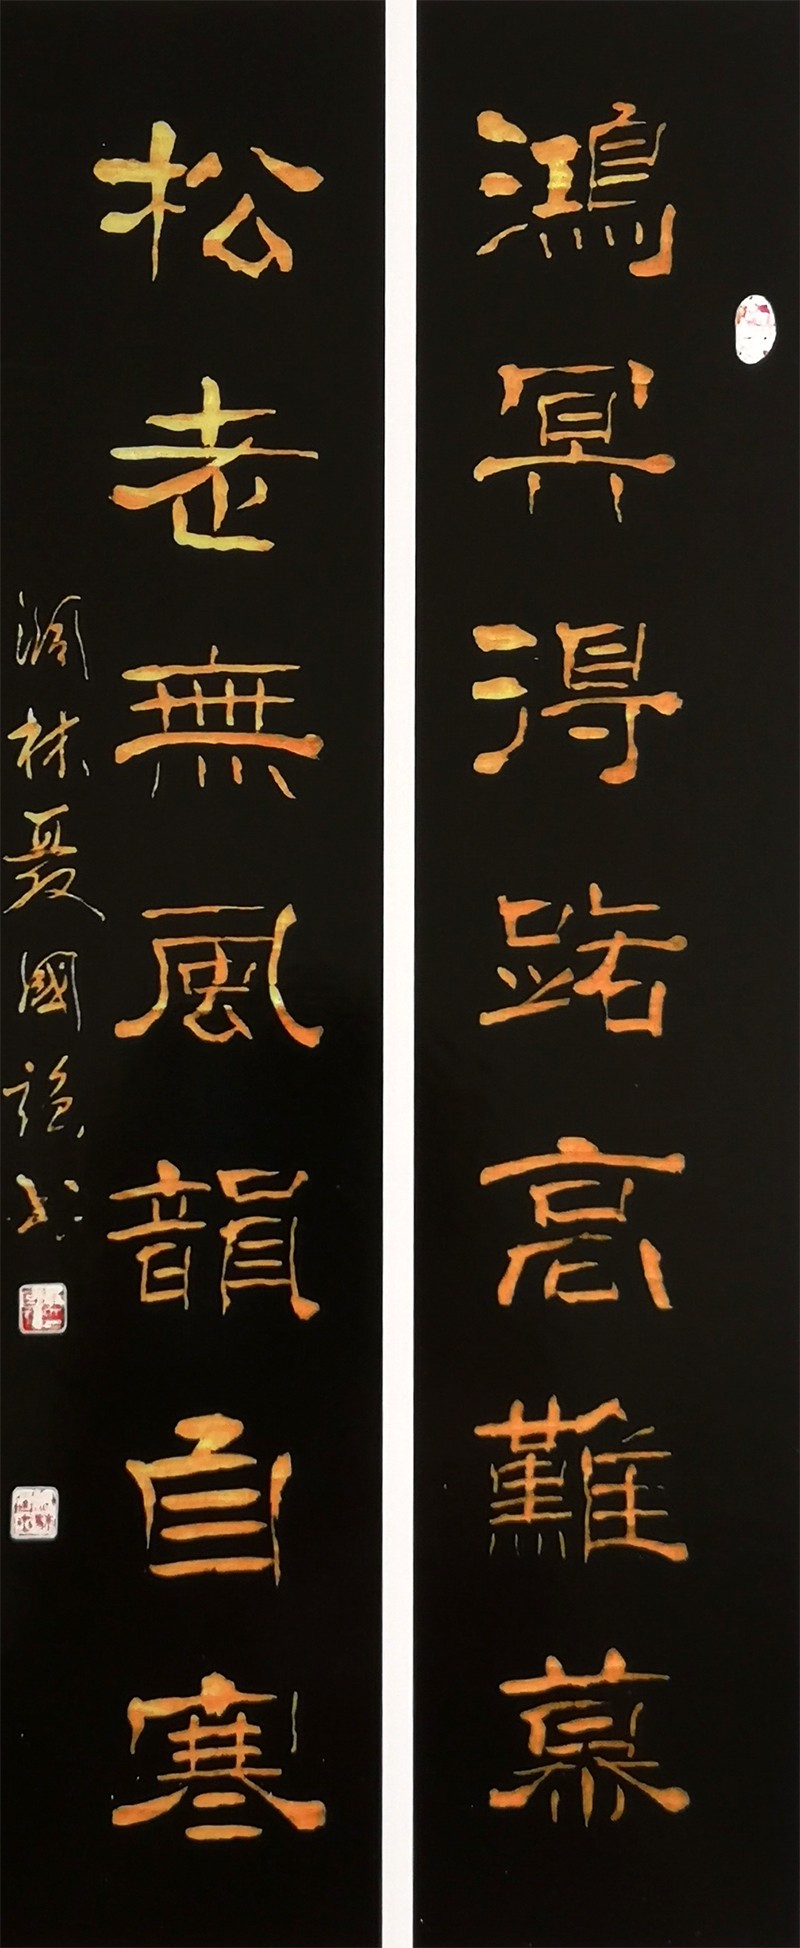 鴻冥得路高難慕
松老無風韻自寒
林聂國书